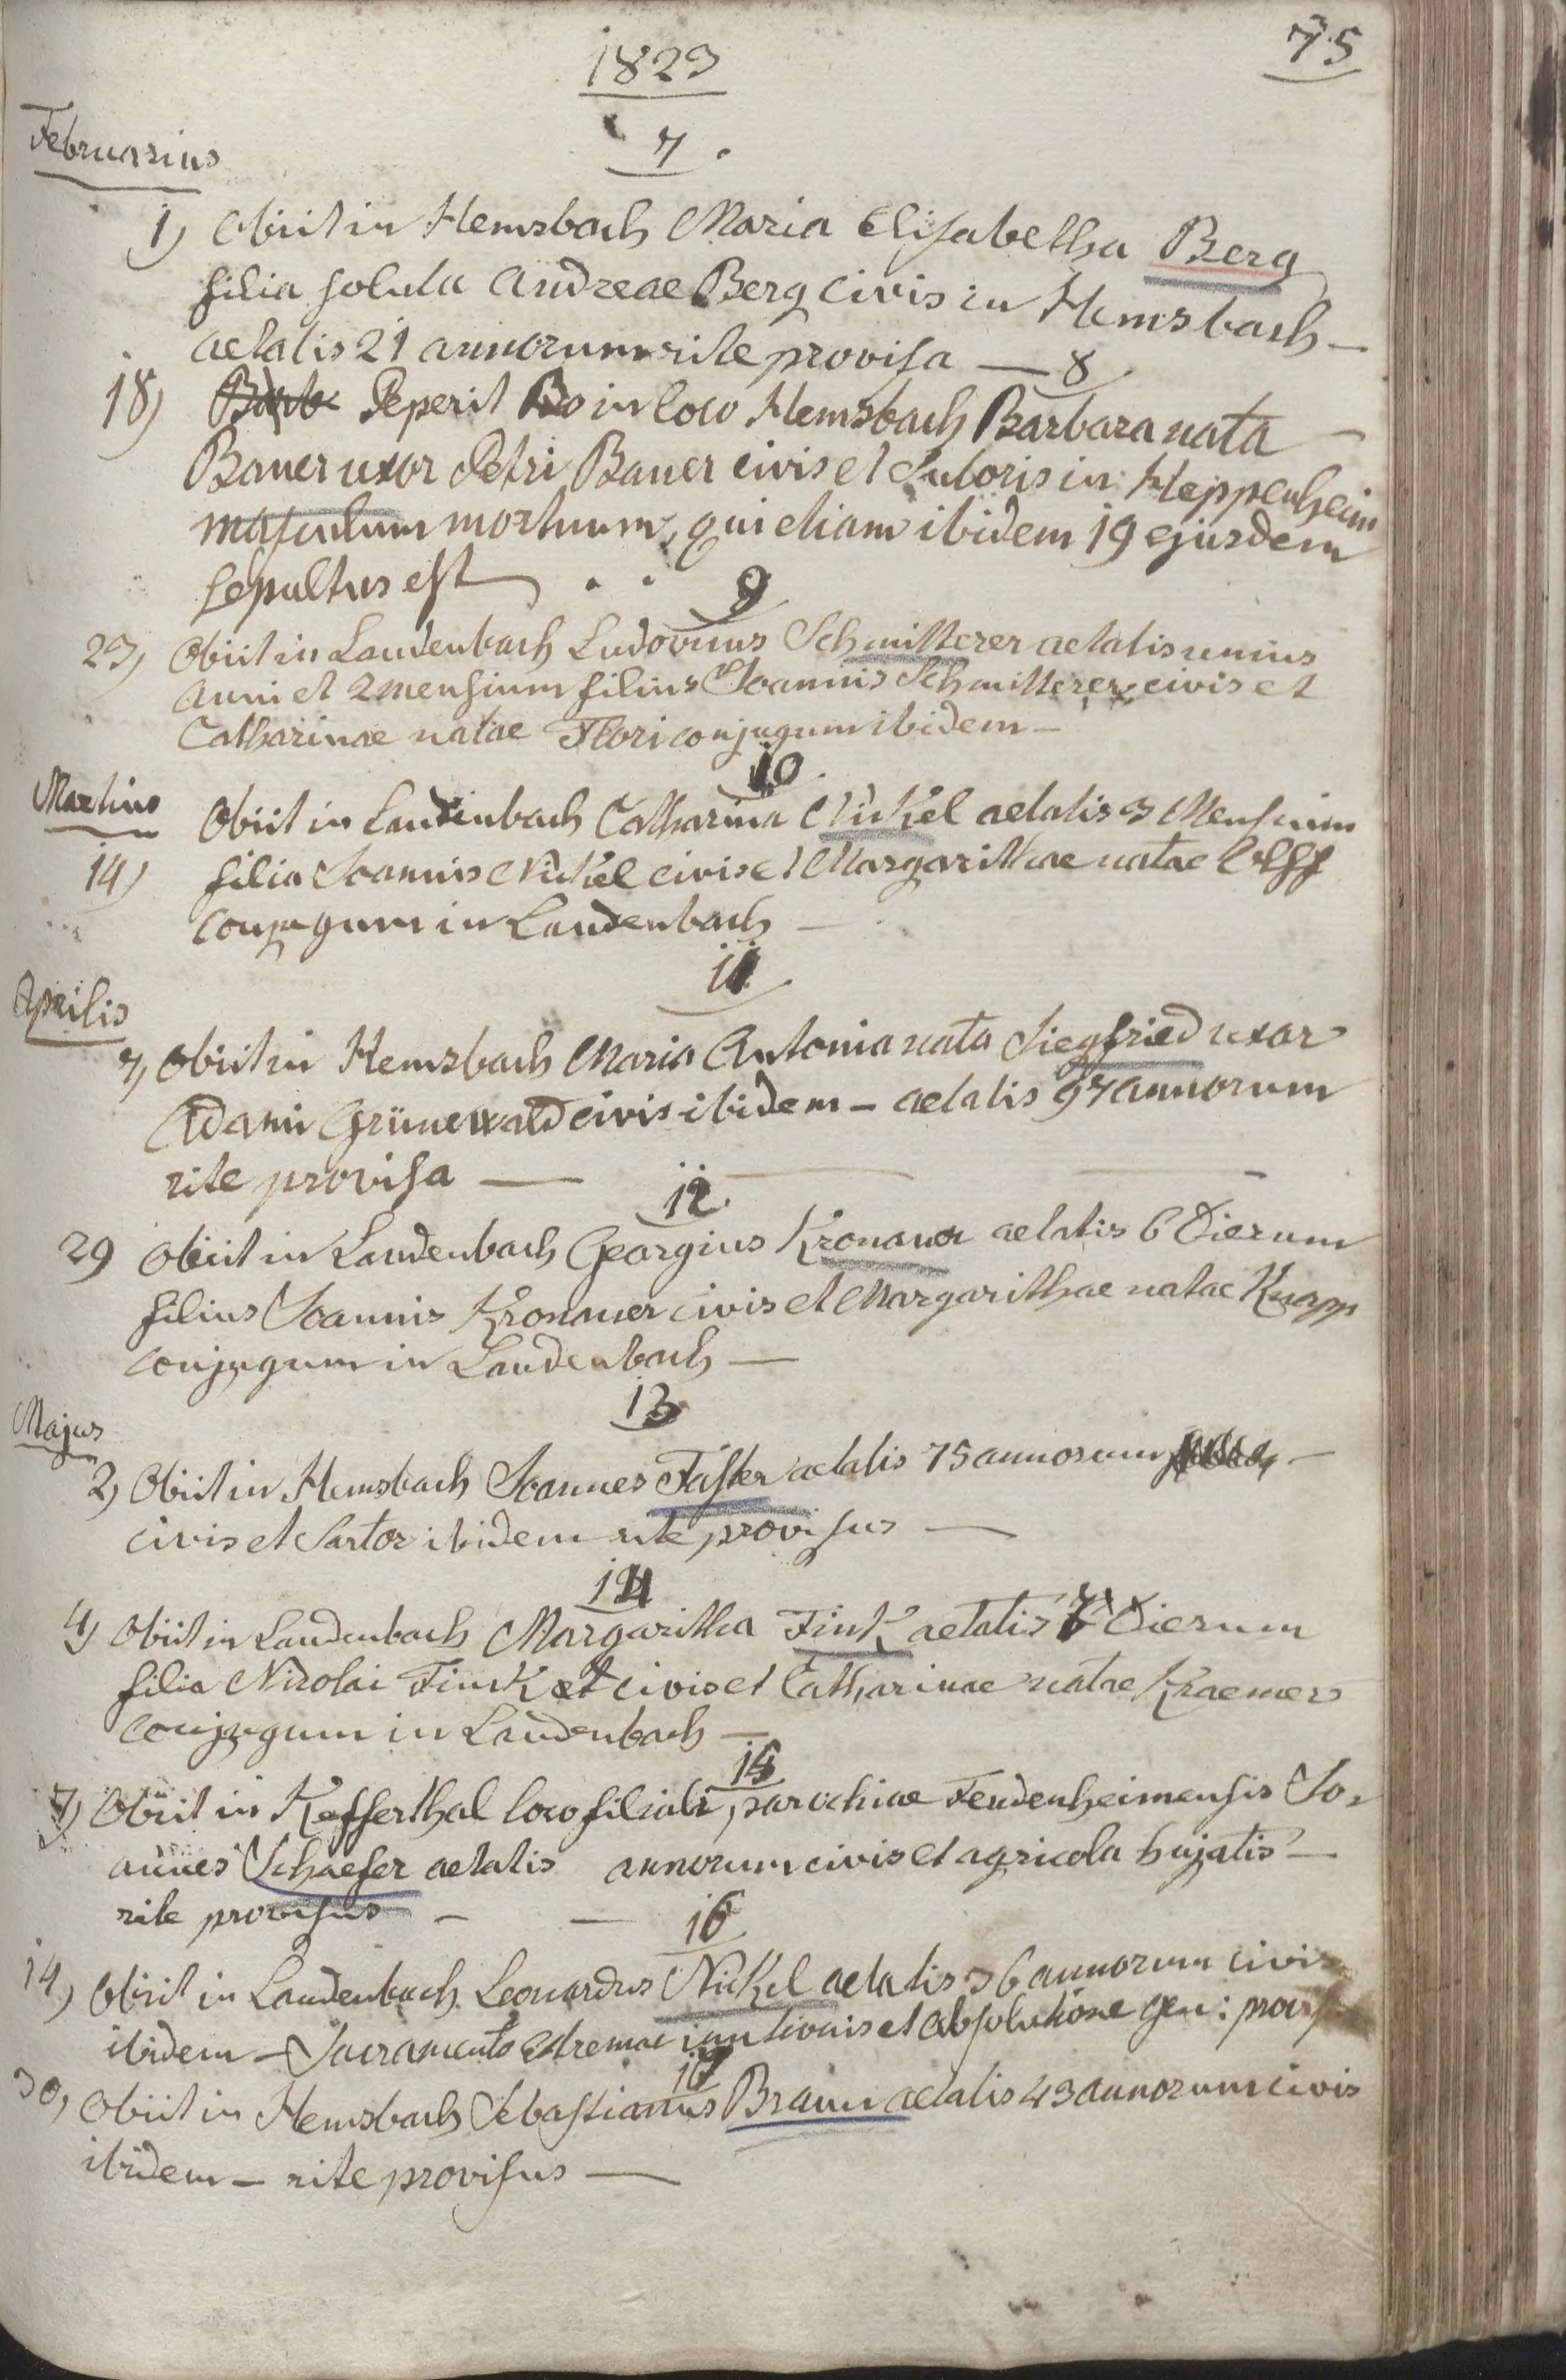 1823
75
Februarius
7.
1) Obiit in Hemsbach Maria Elisabetha Berg
filia soluta Andreae Berg civis in Hemsbach –
aetatis 21 annorum rite provisa — 8
18) Peperit in loco Hemsbach Barbara nata –
Bauer uxor Petri Bauer civis et Sutoris in Heppenheim
masculum mortuum, qui etiam ibidem 19 ejusdem
sepultus est . .
9
23) Obiit in Laudenbach Ludovicus Schmitterer aetatis unius
anni et 2 mensium filius Joannis Schmitterer civis et
Catharinae natae Flori conjugum ibidem –
10
Martius
Obiit in Laudenbach Catharina Nickel aetatis 3 Mensium
14) filia Joannis Nickel civis et Margarithae natae
conjugum in Laudenbach –
11
Aprilis
7) Obiit in Hemsbach Maria Antonia nata Siegfried uxor
Adami Grünewald civis ibidem – aetatis 97 annorum
rite provisa —
12.
29 Obiit in Laudenbach Georgius Kronauer aetatis 6 Dierum
filius Joannis Kronauer civis et Margarithae natae Knapp
conjugum in Laudenbach —
13
Majus
2) Obiit in Hemsbach Joannes Faster aetatis 75 annorum –
civis et Sartor ibidem rite provisus —
14
4) Obiit in Laudenbach Margaritha Fink aetatis 7 Dierum
filia Nicolai Fink civis et Catharinae natae Kraemer
conjugum in Laudenbach —
15
7) Obiit in Kefferthal loco filiali parochiae Feudenheimensis Jo-
annes Schaefer aetatis annorum civis et agricola hujatis —
rite provisus – —
16
14) Obiit in Laudenbach Leonardus Nickel aetatis 36 annorum civis
ibidem – Sacramento extremae unctionis et absolutione gen: provis
17
30) Obiit in Hemsbach Sebastianus Braun aetatis 43 annorum civis
ibidem – rite provisus —